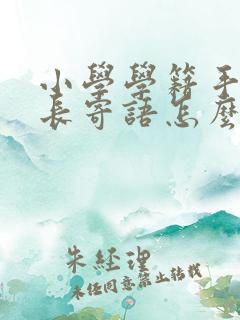 小學學籍手
長寄語怎麼
朱經理
未經同意禁止轉載